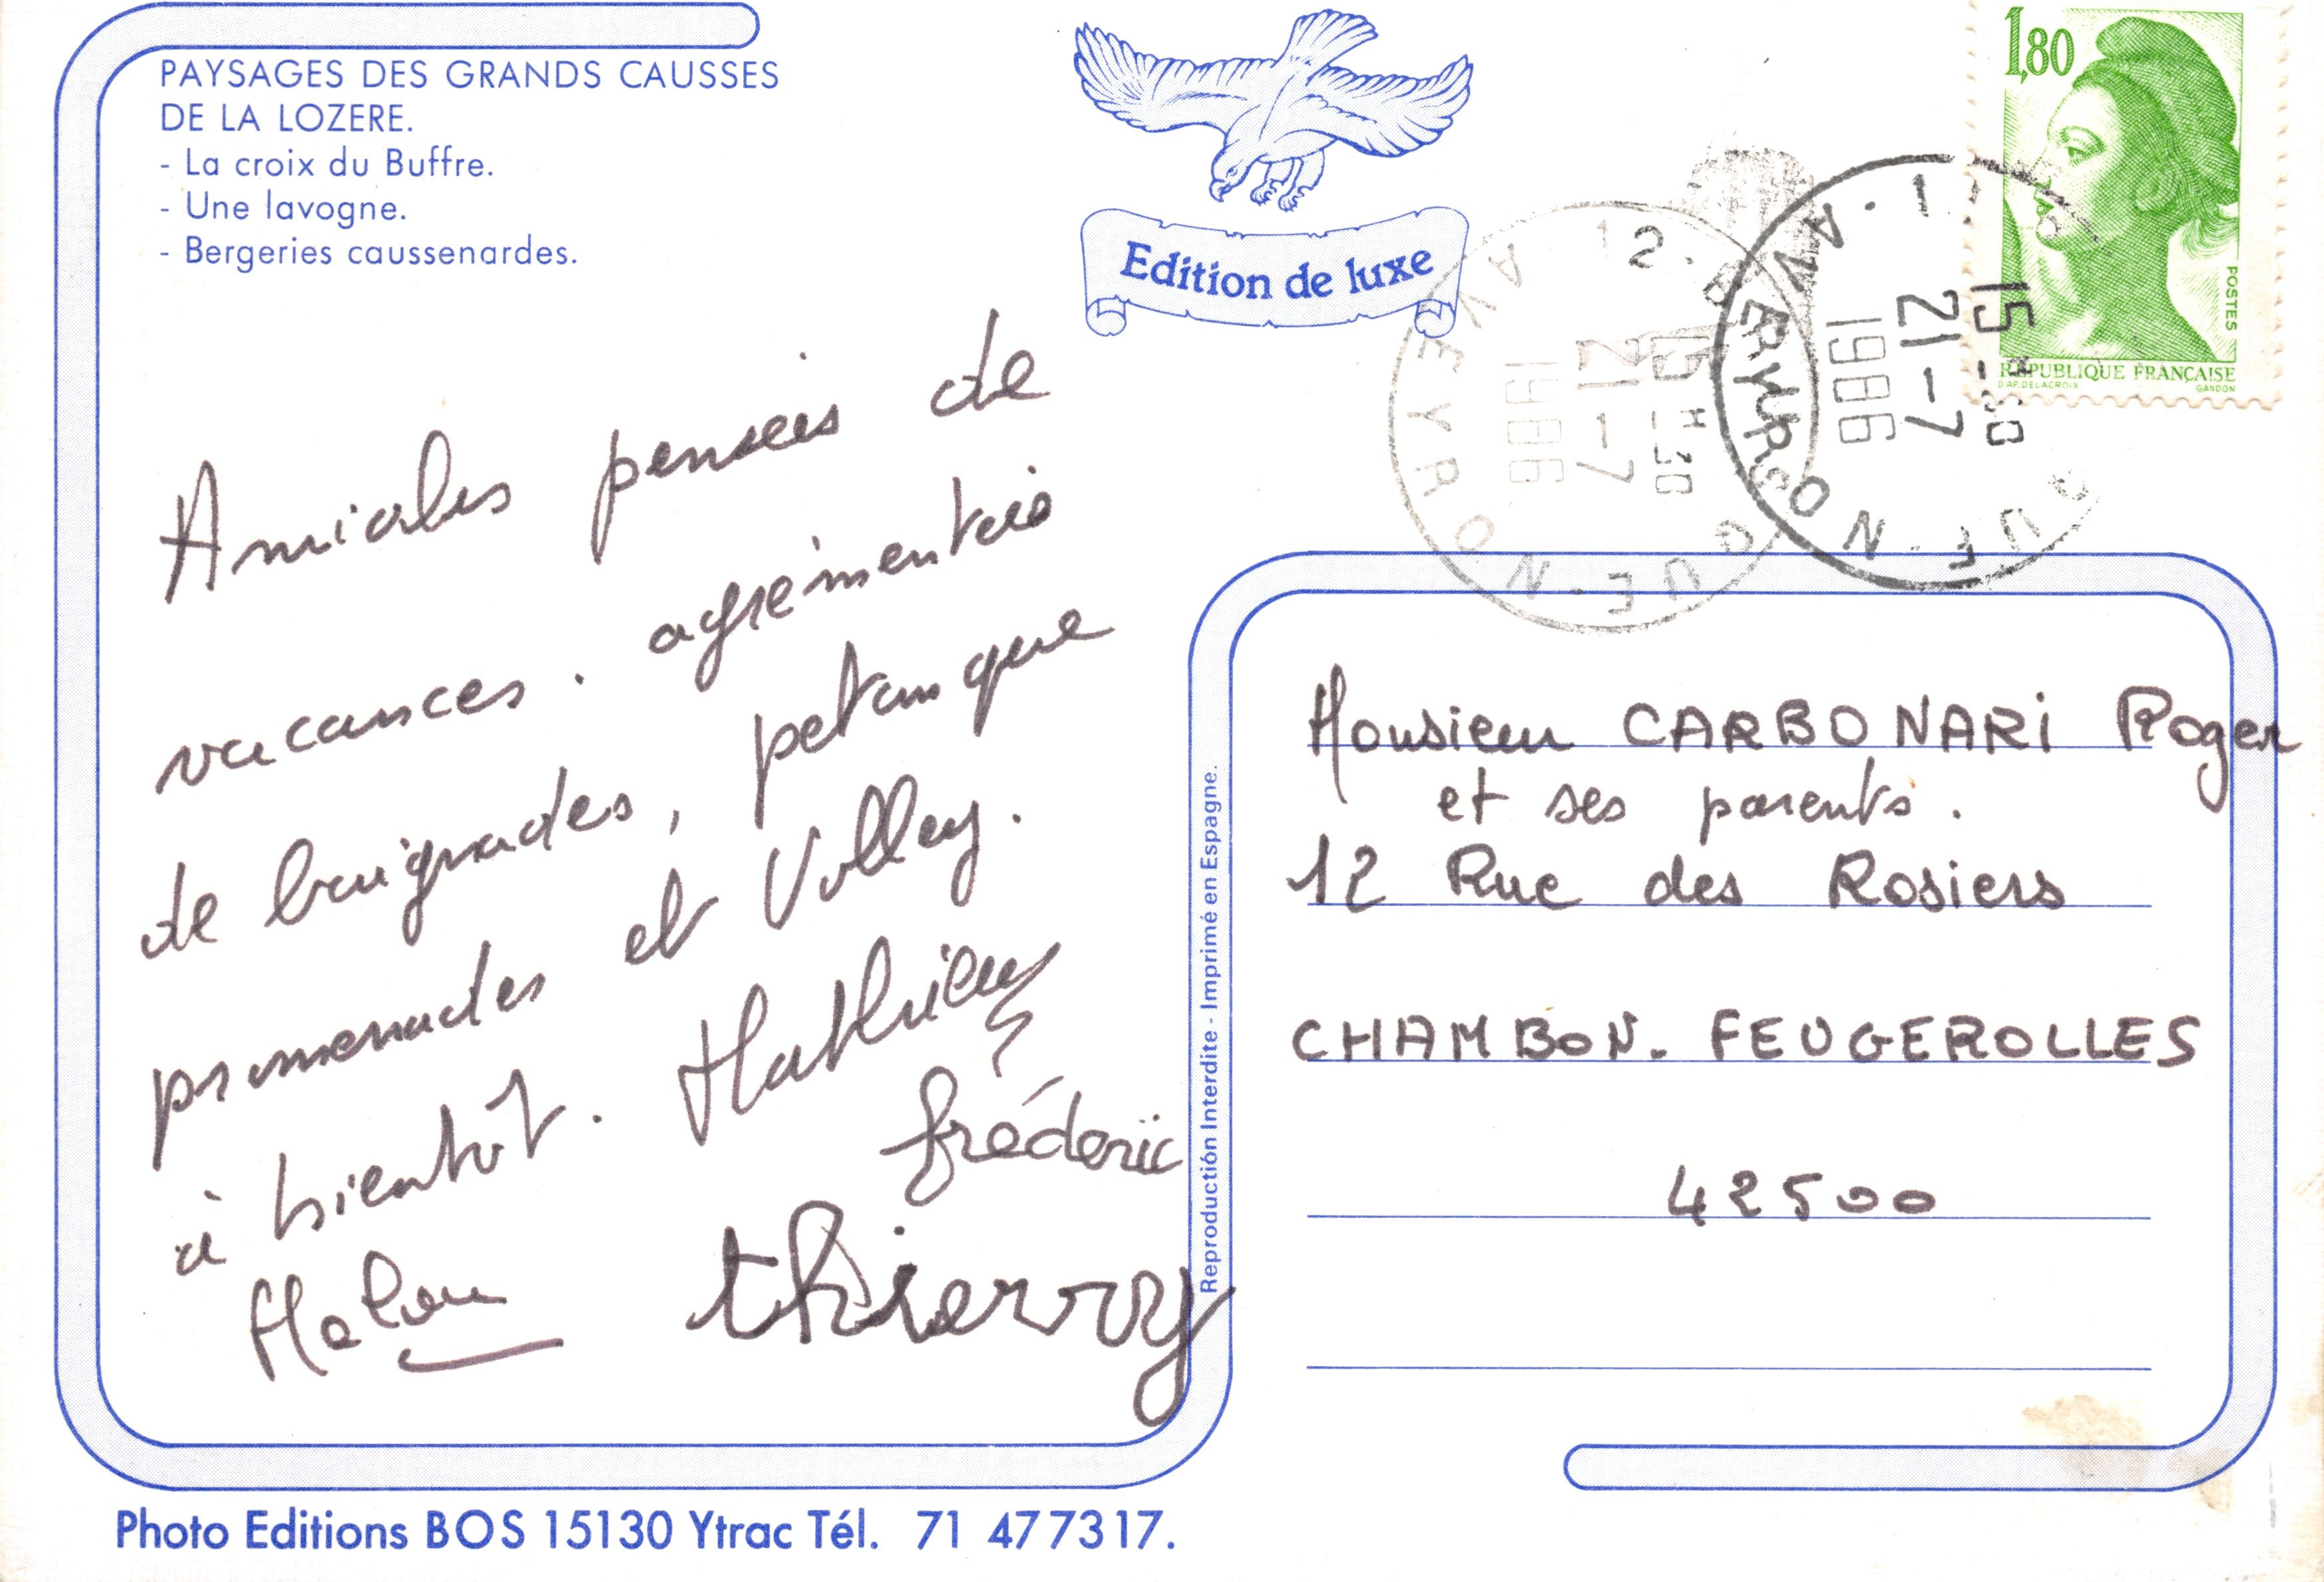 PAYSAGES DES GRANDS CAUSSES
DE LA LOZERE.
- La croix du Buffre.
- Une lavogne.
- Bergeries caussenardes.
Edition de luxe
1,80
POSTES
REPUBLIQUE FRANÇAISE
D'AP. DELACROIX GANDON
15 H 30
21-7
1986
AVEYRON
15 H 30
21-7
1986
AVEYRON
Amicales pensées de
vacances. agrémentées
de baignades, petanque
promenades et Volley.
à bientôt. Mathieu
frédéric
Malou thierry
Reproductión Interdite - Imprimé en Espagne.
Monsieur CARBONARI Roger
et ses parents.
12 Rue des Rosiers
CHAMBON. FEUGEROLLES
42500
Photo Editions BOS 15130 Ytrac Tél. 71 477317.